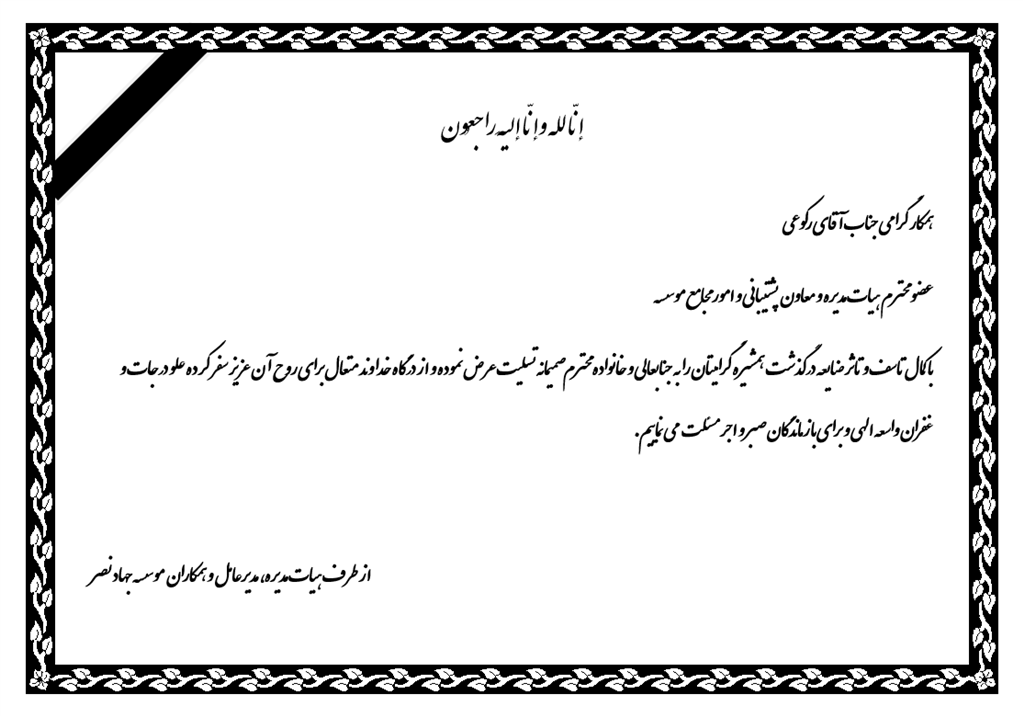 إنّا لله و إنّا إلیه راجعون
همکار گرامی جناب آقای رکوعی
عضو محترم هیات مدیره و معاون پشتیبانی و امور مجامع موسسه
با کمال تاسف و تاثر ضایعه درگذشت همشیره گرامیتان را به جنابعالی و خانواده محترم صمیمانه تسلیت عرض نموده و از درگاه خداوند متعال برای روح آن عزیز سفر کرده علو درجات و
غفران واسعه الهی و برای بازماندگان صبر و اجر مسئلت می نماییم.
از طرف هیات مدیره، مدیرعامل و همکاران موسسه جهاد نصر